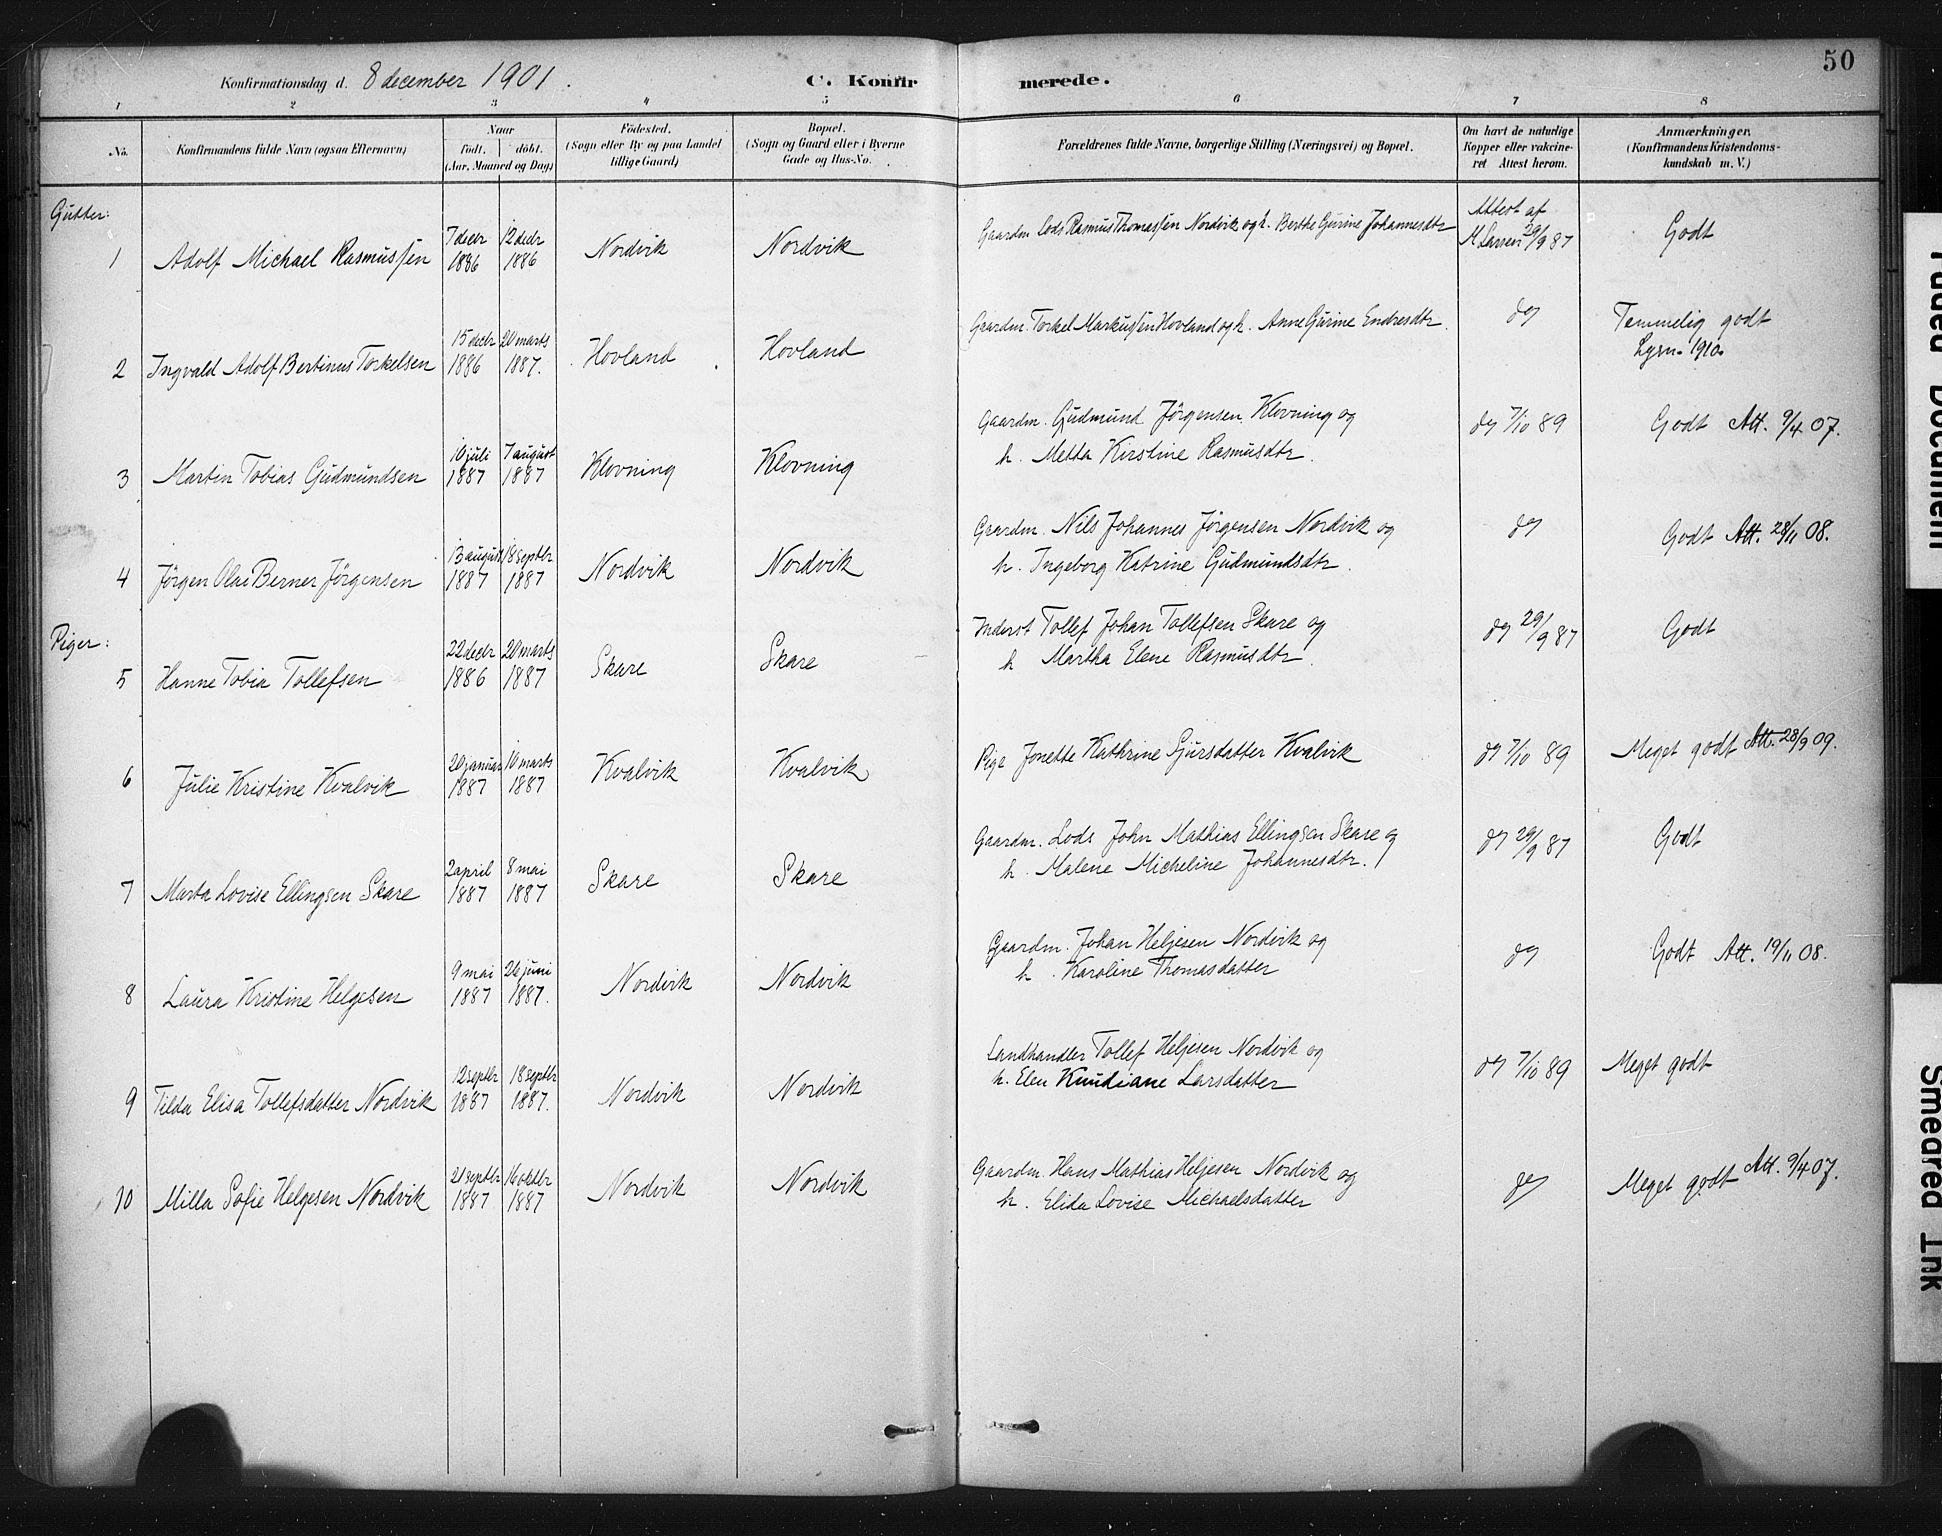 50
Konfirmationsdag d. 8 december 1901.
C. Konfirmerede.
1 2 3 4 5 6 7 8
No.
Konfirmandens fulde Navn (ogsaa Efternavn)
Naar
født. døbt.
(Aar, Maaned og Dag)
Fødested.
(Sogn eller By og paa Landet
tillige Gaard)
Bopæl.
(Sogn og Gaard eller i Byerne
Gade og Hus-No.
Forældrenes fulde Navne, borgerlige Stilling (Næringsvei) og Bopæl.
Om havt de naturlige
Kopper eller vakcine-
ret Attest herom.
Anmærkninger.
(Konfirmandens Kristendoms-
kundskab m. V.)
Gutter:
1 Adolf Michael Rasmussen 7 decbr 1886 12 decbr 1886 Nordvik Nordvik
Gaardm. Lods Rasmus Thomassen Nordvik og h. Berthe Gurine Johannesdtr
Attest af
M Larsen 29/9 87
Godt
2 Ingvald Adolf Bertinus Torkelsen 15 decbr 1886 20 marts 1887. Hovland Hovland
Gaardm. Torkel Markussen Hovland og h. Anne Gurine Endresdtr.
do
Temmelig godt
1910
3 Martin Tobias Gudmundsen 10 juli 1887 7 august 1887 Klovning Klovning
Gaardm. Gudmund Jørgensen Klovning og
h. Metta Kirstine Rasmusdtr.
do 7/10 89
Godt Att. 9/4 07.
4 Jørgen Olai Berner Jørgensen 13 august 1887 18 septbr 1887 Nordvik Nordvik
Gaardm. Nils Johannes Jørgensen Nordvik og
h. Ingeborg Katrine Gudmundsdtr.
do
Godt Att. 28/11 08.
Piger:
5 Hanne Tobia Tollefsen 22 decbr 1886 20 marts 1887 Skare Skare
Inderst Tollef Johan Tollefsen Skare og
h Martha Elene Rasmusdtr.
do 29/9 87
Godt
6 Julie Kristine Kvalvik 20 januar 1887 10 marts 1887 Kvalvik Kvalvik
Pige Jonette Kathrine Sjursdatter Kvalvik
do 7/10 89
Meget godt Att. 28/9 09.
7 Marta Lovise Ellingsen Skare 2 april 1887 8 mai 1887 Skare Skare
Gaardm. Lods John Mathias Ellingsen Skare og
h. Malene Micheline Johannesdtr.
do 29/9 87
Godt
8 Laura Kristine Helgesen 9 mai 1887 26 juni 1887. Nordvik Nordvik
Gaardm. Johan Heljesen Nordvik og
h. Karoline Thomasdatter
do
Godt Att. 19/11 08.
9 Tilda Elisa Tollefsdatter Nordvik 12 septbr 1887 18 septbr 1887. Nordvik Nordvik
Landhandler Tollef Heljesen Nordvik og
h. Elen Knudiane Larsdatter
do 7/10 89
Meget godt
10 Milla Sofie Helgesen Nordvik 21 septbr 1887 16 oktbr 1887 Nordvik Nordvik
Gaardm. Hans Mathias Heljesen Nordvik og
h. Elida Lovise Michaelsdatter
do
Meget godt Att. 9/4 07.
Faded Document
Smeared Ink